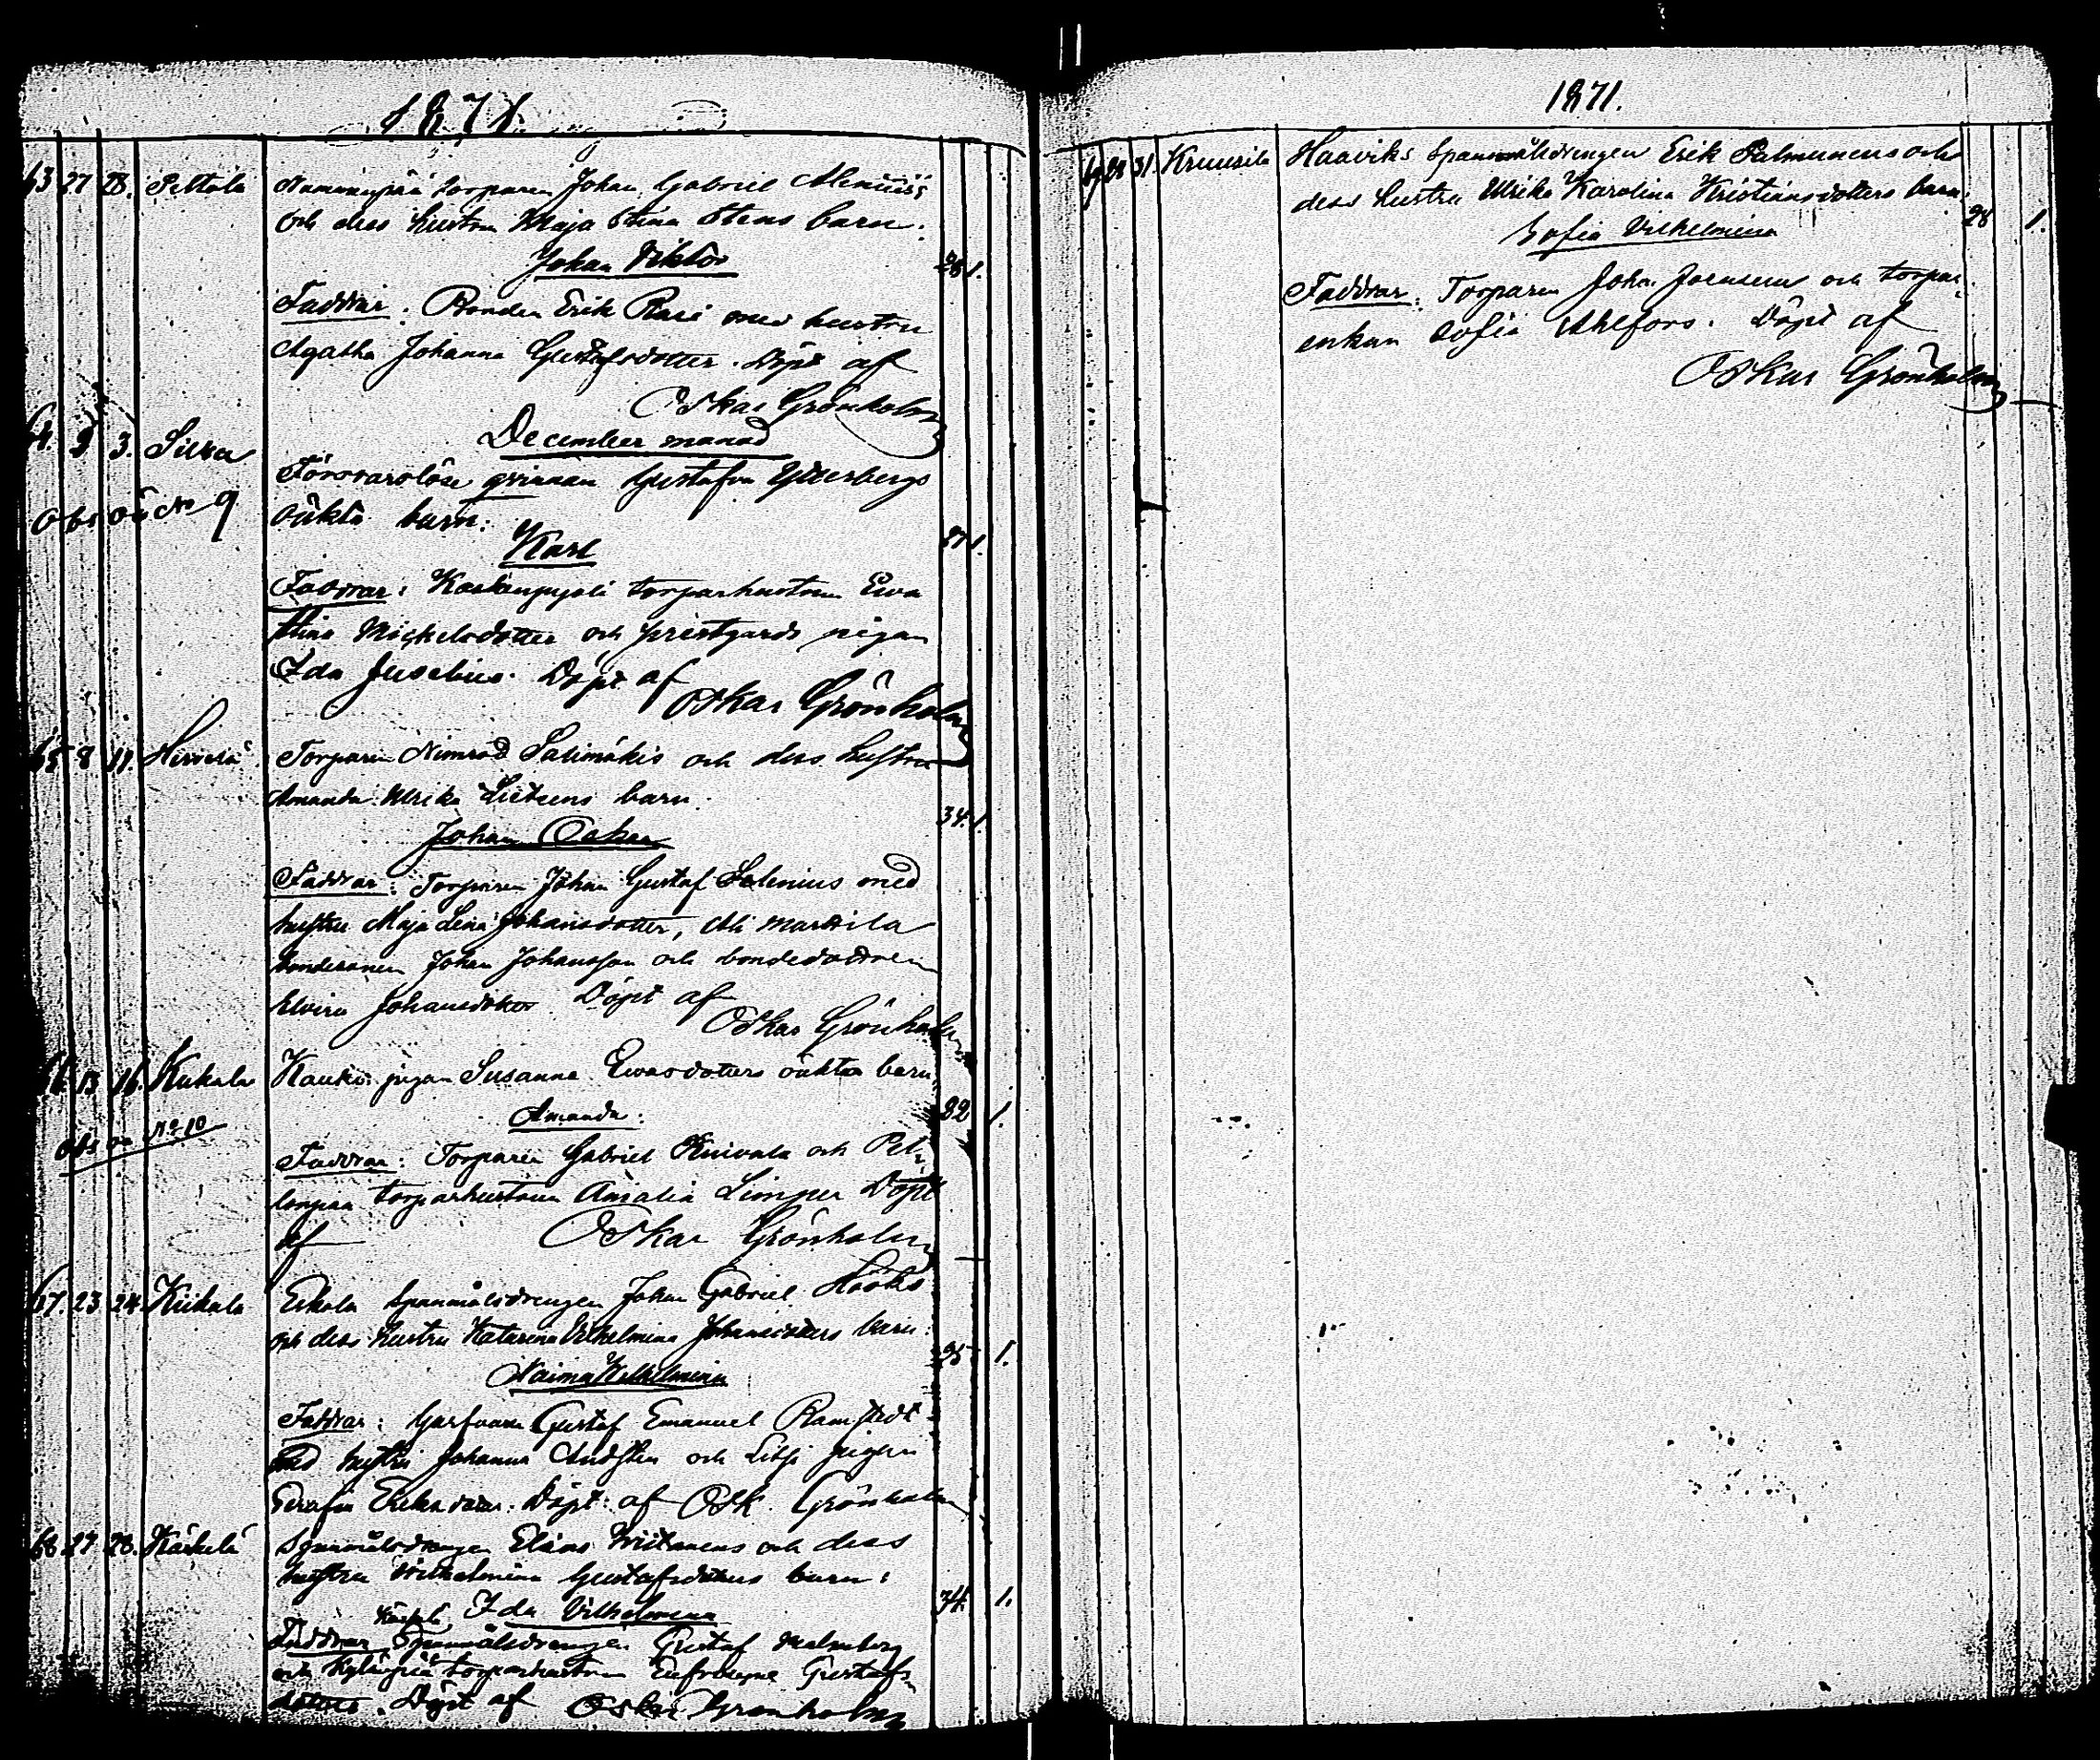 1871.
63 27 28. Peltola Nummenpää torparen Johan Gabriel Alenius's
och dess hustru Maja Stina Stens barn:
Johan Viktor
Faddrar: Bonden Erik Rasi med hustru
Agatha Johanna Gustafsdotter. Döpt af
Oskar Grönholm
December månad
64. 3. Silva Försvarslösa qvinnan Gustafva Ytterbergs
Obs oä No 9 oäkta barn:
Karl 37 1.
Faddrar: torparhustrun Eva
Stina Mickelsdotter och prestgårds pigan
Ida Juselius. Döpt af
Oskar Grönholm
65 8 Torparen Nimrod Salimäkis och dess hustru
Amanda Ulrika barn.
Johan Oskar 34. 1.
Faddrar: Torparen Johan Gustaf Salenius med
hustru Maja Lena Johansdotter, Ali Marttila
bondesonen Johan Johansson och bondedottren
Elvira Johansdotter Döpt af
Oskar Grönholm
66 13 16. Kukola pigan Susanna Evasdotters oäkta barn
Amanda: 22 1.
obs oä No 10
Faddrar: Torparen Gabriel och
torparhustrun Amalia Limper Döpt
af Oskar Grönholm
67. 23 24. Kiikala Erkola spanmålsdrengen Johan Gabriel Hööks
och dess hustru Katarina Vilhelmina Johansdotters barn:
Naima Vilhelmina 25 1.
Faddrar: Garfvaren Gustaf Emanuel Ramstedt
med hustru Johanna och pigan
Serafia Eriksdotter. Döpt: af Osk. Grönholm
68. 27. 28. Käckelä Spanmålsdrengen Elias Wiitanens och dess
hustru Wilhelmina Gustafsdotters barn:
Ida Vilhelmina 34. 1.
Faddrar Spanmålsdrengen Gustaf Malmberg
och torparhustrun Eufrosyne Gustafs-
dotter. Döpt af Oskar Grönholm
1871.
69 31. Kruusila Haaviks Spanmålsdrengen Erik Palmunens och
dess hustru Ulrika Karolina Kristiansdotters barn:
Sofia Vilhelmina 28 1.
Faddrar: Torparen Johan och torpar-
enkan Sofia Ahlfors. Döpt af
Oskar Grönholm